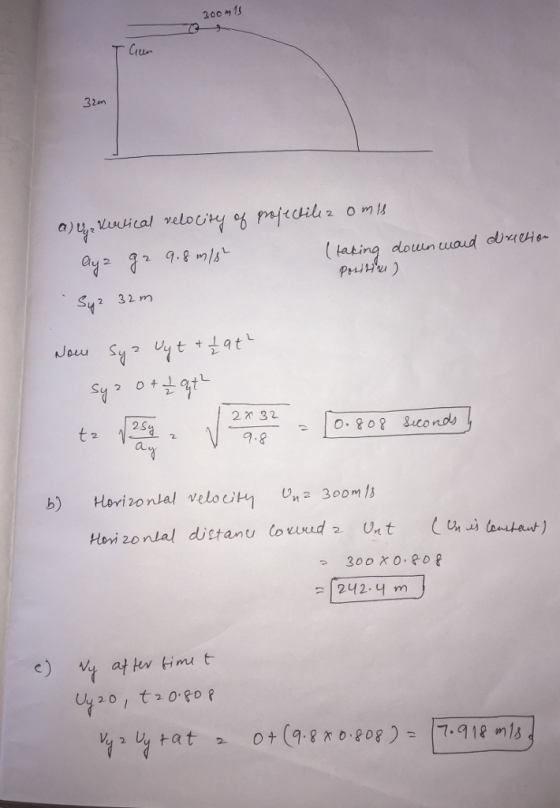 300 m/s
Gun
32m
a) Uy = Vertical velocity of projectile = 0 m/s
ay = g = 9.8 m/s² (taking downward direction positive)
Sy = 32 m
Now Sy = Uyt + ½at²
Sy = 0 + ½ayt²
t = √(2Sy/ay) = √(2×32/9.8) = 0.808 seconds
b) Horizontal velocity Ux = 300m/s
Horizontal distance covered = Uxt (Ux is constant)
= 300×0.808
= 242.4 m
c) Vy after time t
Uy=0, t=0.808
Vy = Uy + at = 0+(9.8×0.808) = 7.918 m/s